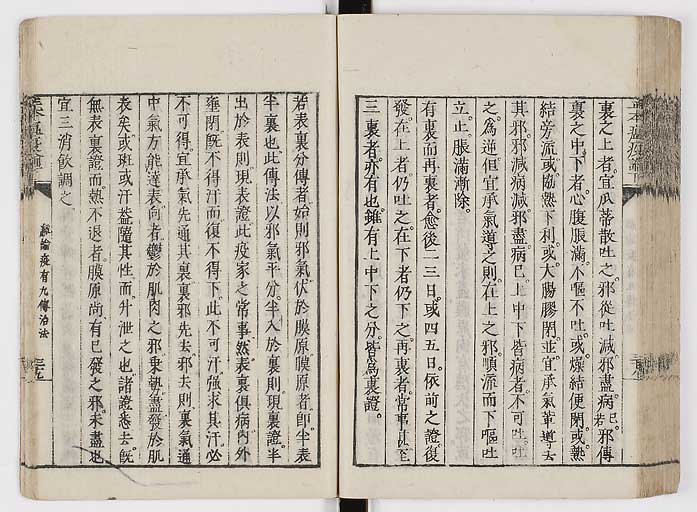 裏之上者。宜瓜蒂散吐之。邪從吐減。邪盡病已。若邪傳
裏之中下者。心腹脹滿。不嘔不吐。或燥結便閉。或熱
結旁流。或協熱下利。或大腸膠閉。並宜承氣輩導去
其邪。邪減病減。邪盡病已。上中下皆病者。不可吐。吐
之為逆。但宜承氣導之。則在上之邪。順流而下。嘔吐
立止。脹滿漸除。
有裏而再裏者。愈後二三日。或四五日。依前之證復
發。在上者。仍吐之。在下者。仍下之。再裏者。常事。甚至
三裏者。亦有也。雖有上中下之分。皆為裏證。
若表裏分傳者。始則邪氣伏於膜原。膜原者。即半表
半裏也。此傳法以邪氣平分。半入於裏。則現裏證。半
出於表。則現表證。此疫家之常事。然表裏俱病。內外
壅閉。既不得汗。而復不得下。此不可汗。強求其汗。必
不可得。宜承氣先通其裏。裏邪先去。邪去則裏氣通
中氣方能達表。向者鬱於肌肉之邪。乘勢盡發於肌
表矣。或斑或汗。蓋隨其性而升泄之也。諸證悉去。既
無表裏證。而熱不退者。膜原尚有已發之邪。未盡也
宜三消飲調之
統論疫有九傳治法